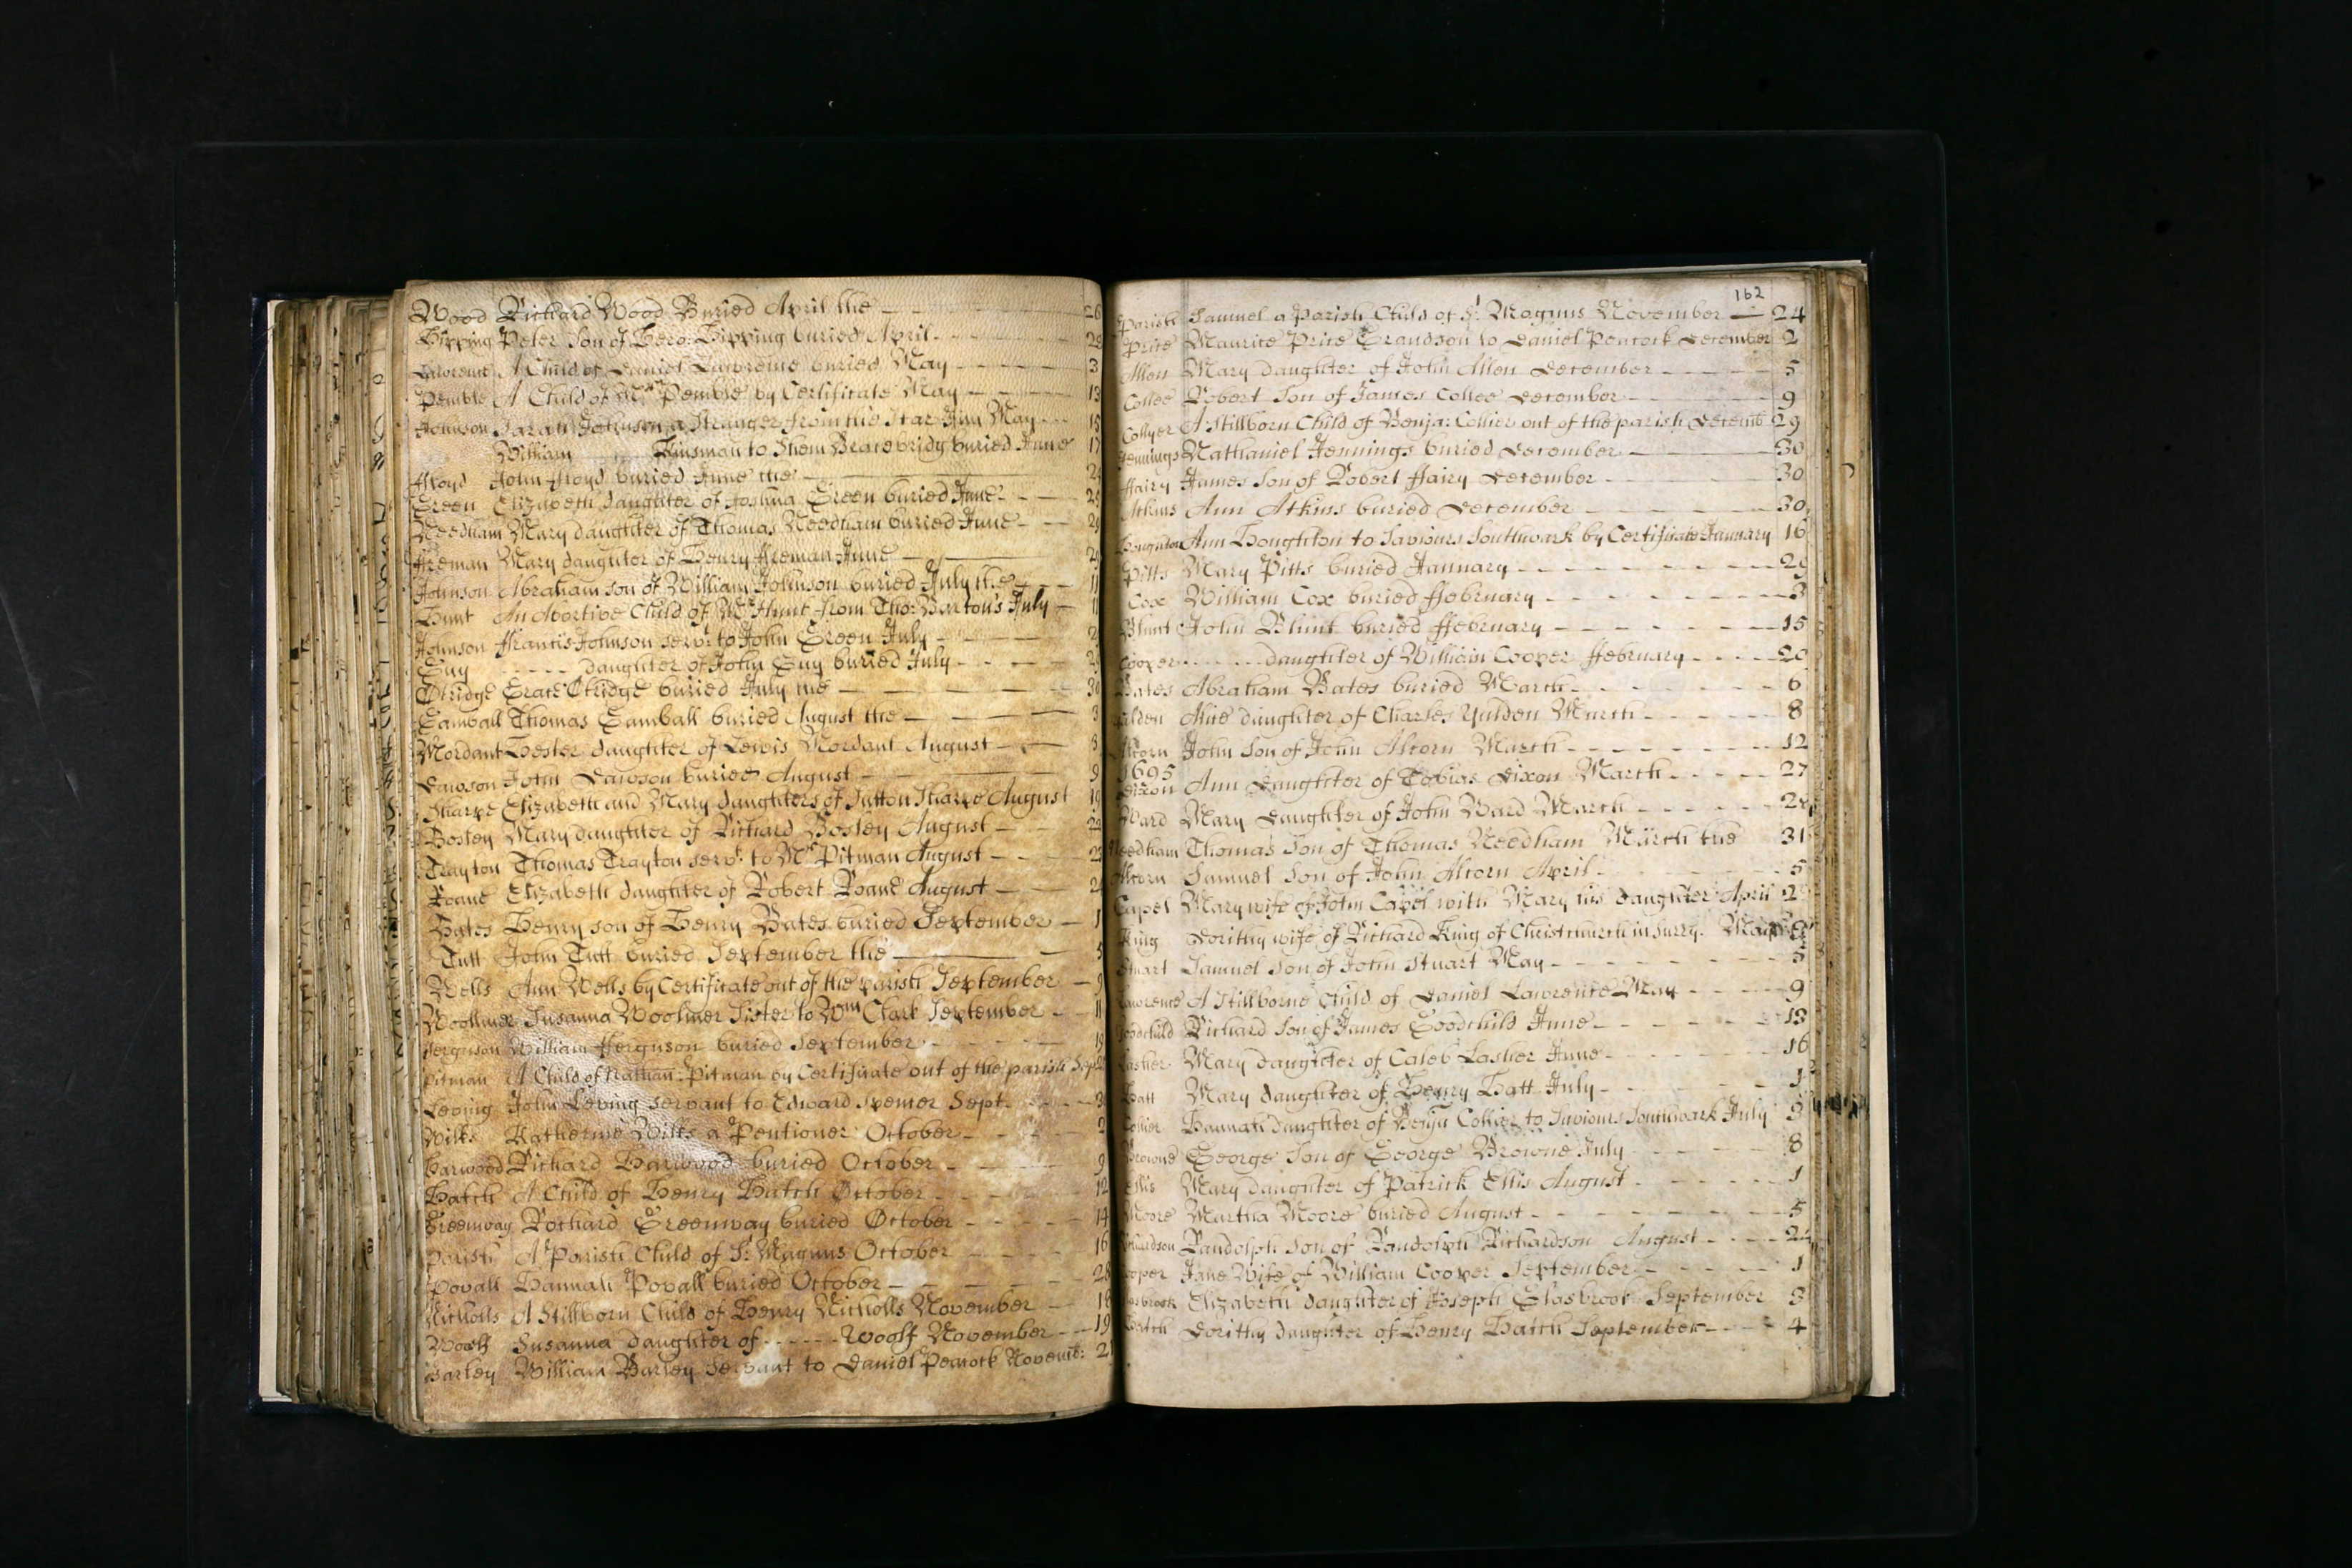 Wood Richard Wood Buried April the 26
Hipping Peter Son of Hero: Hipping buried April 28
Lawrence A Child of Daniel Lawrence buried May 3
Pemble A Child of Mr Pemble by Certificate May 13
Johnson Sarah Johnson a Stranger from the Star Inn May 15
William Kinsman to Shem Bracebridg buried June 17
ffloyd John ffloyd buried June the
Green Elizabeth daughter of Joshua Green buried June
Needham Mary daughter of Thomas Needham buried June
ffreman Mary daughter of Henry ffreman June
Johnson Abraham son of William Johnson buried July the 11
Hunt An Abortive Child of Mr Hunt from Tho: Barton's July
Johnson ffrancis Johnson servt. to John Green July
Guy daughter of John Guy buried July
Otridge Grace Otridge buried July the 30
Gamball Thomas Gamball buried August the 3
Mordant Hester daughter of Lewis Mordant August 8
Dawson John Dawson buried August 9
Sharpe Elizabeth and Mary daughters of Sutton Sharpe August 19
Bosley Mary daughter of Richard Bosley August 22
Trayton Thomas Trayton servt. to Mr Pitman August 23
Roane Elizabeth daughter of Robert Roane August
Bates Henry son of Henry Bates buried September 1
Tutt John Tutt buried September the 5
Wells Ann Wells by Certificate out of the parish September 9
Woollmer Susanna Woolmer Sister to Wm Clark September 11
fferguson William fferguson buried September 19
Pitman A Child of Nathan: Pitman by Certificate out of the parish Sep
Leving John Leving Servant to Edward Spemer Sept.
Wilks Katherine Wilks a Pentioner October 2
Harwood Richard Harwood buried October 9
Hatch A Child of Henry Hatch October 12
Greenway Richard Greenway buried October 14
Parish A Parish Child of St. Magnus October 16
Povall Hannah Povall buried October 28
Nicholls A Stillborn Child of Henry Nicholls November 18
Woolf Susanna daughter of Woolf November 19
Barley William Barley Servant to Daniel Peacock Novemb: 2
162
Parish Samuel a Parish Child of St. Magnus November 24
Price Maurice Price Grandson to Daniel Peacock December 2
Allen Mary daughter of John Allen December 5
Collee Robert Son of James Collee December 9
Collyer A Stillborn Child of Benja: Collier out of the parish Decemb 29
Jennings Nathaniel Jennings buried December 30
ffairy James Son of Robert ffairy December 30
Atkins Ann Atkins buried December 30
Houghton Ann Houghton to Saviours Southwark by Certificate January 16
Pitts Mary Pitts buried January
Cox William Cox buried ffebruary 3
Blunt John Blunt buried ffebruary 15
Cooper daughter of William Cooper ffebruary 20
Bates Abraham Bates buried March 6
Yulden Alice daughter of Charles Yulden March 8
Alcorn John Son of John Alcorn March 12
1695
Dixon Ann Daughter of Tobias Dixon March 27
Ward Mary Daughter of John Ward March
Needham Thomas Son of Thomas Needham March the 31
Alcorn Samuel Son of John Alcorn April 5
Capel Mary wife of John Capel with Mary his daughter April
King Dorithy wife of Richard King of Christchurch in Surry. May
Stuart Samuel Son of John Stuart May
Lawrence A Stillborne Child of Daniel Lawrence May 9
Goodchild Richard Son of James Goodchild June 13
Lasher Mary daughter of Caleb Lasher June 16
Hatt Mary daughter of Henry Hatt July 1
Collier Hannah daughter of Benja Collier to Saviours Southwark July
Browne George Son of George Browne July 8
Ellis Mary daughter of Patrick Ellis August 1
Moore Martha Moore buried August 5
Richardson Randolph Son of Randolph Richardson August
Cooper Jane Wife of William Cooper September 1
Glasbrook Elizabeth daughter of Joseph Glasbrook September 3
Hatch Dorithy daughter of Henry Hatch September 4